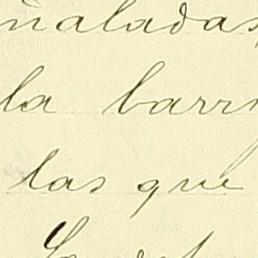 ñaladas
la barr
las que